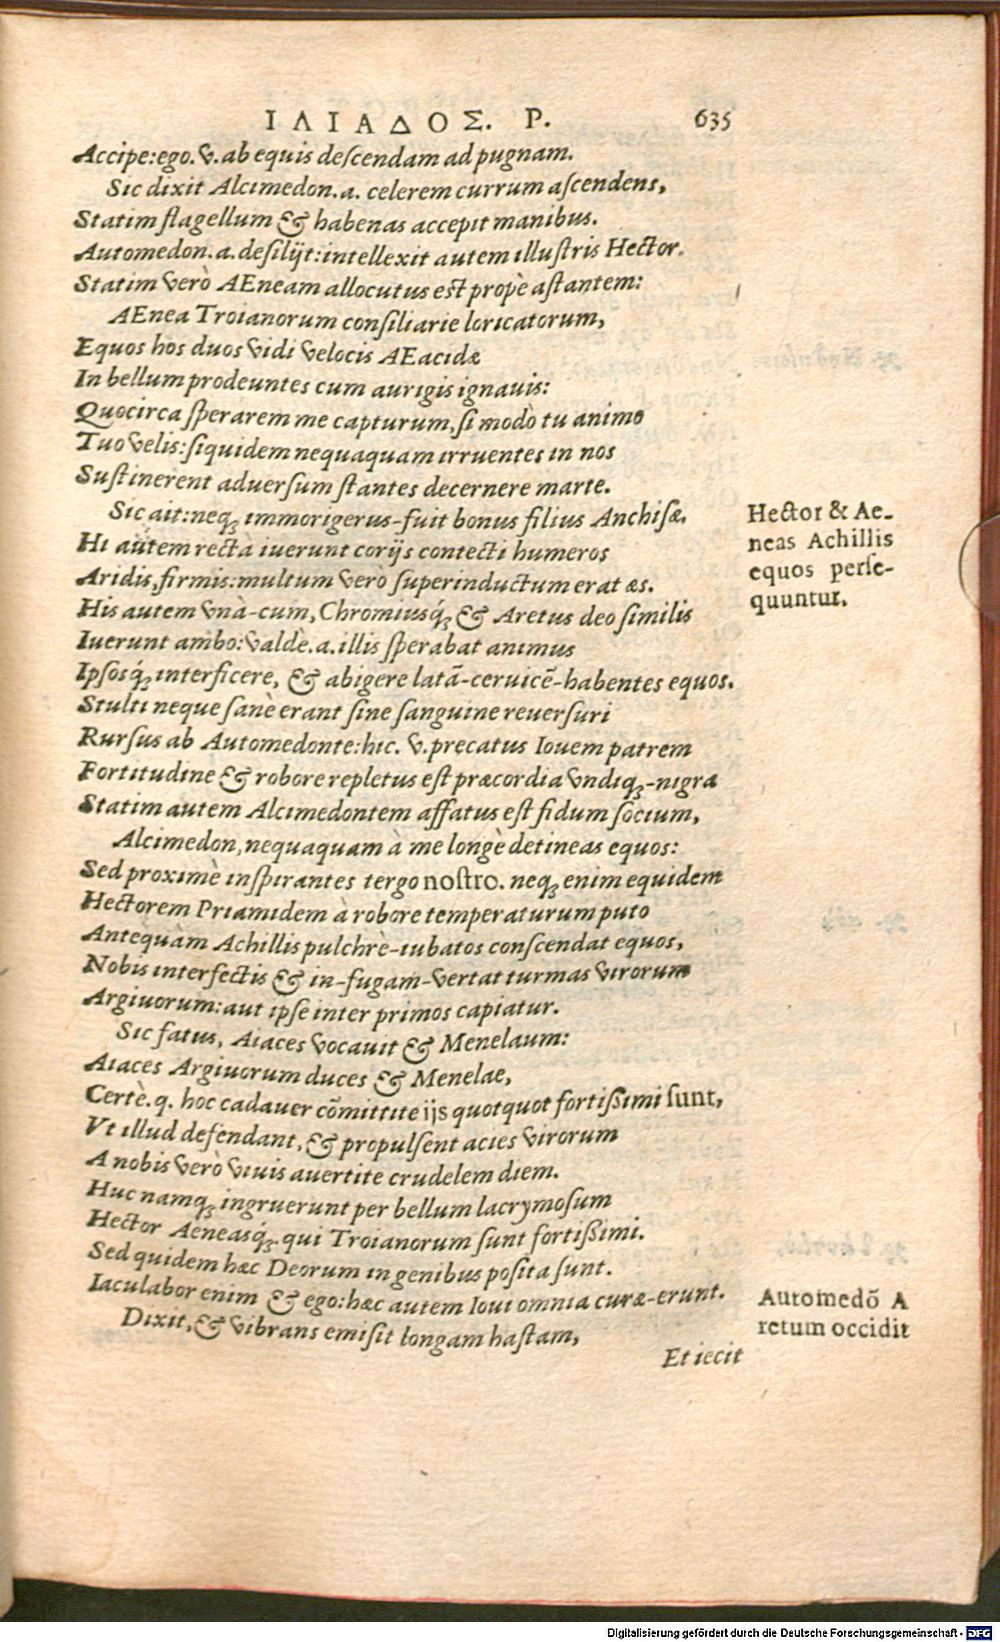 ΙΛΙΑΔΟΣ. Ρ. 635
Accipe:ego.v.ab equis deſcendam ad pugnam.
Sic dixit Alcimedon.a. celerem currum aſcendens,
Statim flagellum & habenas accepit manibus.
Automedon.a.deſilijt:intellexit autem illuſtris Hector.
Statim verò AEneam allocutus eſt propè aſtantem:
AEnea Troianorum conſiliarie loricatorum,
Equos hos duos vidi velocis AEacidæ
In bellum prodeuntes cum aurigis ignauis:
Quocirca ſperarem me capturum,ſi modò tu animo
Tuo velis:ſiquidem nequaquam irruentes in nos
Suſtinerent aduerſum ſtantes decernere marte.
Sic ait:neq; immorigerus-fuit bonus filius Anchiſæ,
Hi autem rectà iuerunt corijs contecti humeros
Aridis,firmis:multum verò ſuperinductum erat æs.
His autem vnà-cum,Chromiusq́; & Aretus deo ſimilis
Iuerunt ambo:valdè.a.illis ſperabat animus
Ipſosq́; interficere, & abigere latã-ceruicẽ-habentes equos.
Stulti neque ſanè erant ſine ſanguine reuerſuri
Rurſus ab Automedonte:hic. v.precatus Iouem patrem
Fortitudine & robore repletus eſt præcordia vndiq;-nigra
Statim autem Alcimedontem affatus eſt fidum ſocium,
Alcimedon,nequaquam à me longè detineas equos:
Sed proximè inſpirantes tergo noſtro. neq; enim equidem
Hectorem Priamidem à robore temperaturum puto
Antequàm Achillis pulchrè-iubatos conſcendat equos,
Nobis interfectis & in-fugam-vertat turmas virorum
Argiuorum:aut ipſe inter primos capiatur.
Sic fatus, Aiaces vocauit & Menelaum:
Aiaces Argiuorum duces & Menelae,
Certè.q. hoc cadauer cõmittite ijs quotquot fortiſſimi ſunt,
Vt illud defendant,& propulſent acies virorum
A nobis verò viuis auertite crudelem diem.
Huc namq; ingruerunt per bellum lacrymoſum
Hector Aeneasq́;.qui Troianorum ſunt fortiſſimi.
Sed quidem hæc Deorum in genibus poſita ſunt.
Iaculabor enim & ego:hæc autem Ioui omnia curæ-erunt.
Dixit,& vibrans emiſit longam haſtam,
Et iecit
Hector & Ae-
neas Achillis
equos perſe-
quuntur.
Automedõ A
retum occidit
Digitalisierung gefördert durch die Deutsche Forschungsgemeinschaft - DFG